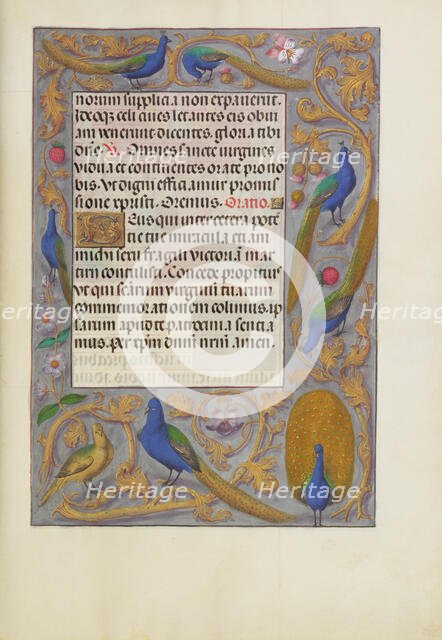 norum supplicia non expauerūt.
Ideoq; celi ciues letantes eis obui
am venerunt dicentes. gloria tibi
dn̄e. V. Omnes sancte virgines
vidue et continentes orate pro no
bis. Vt digni efficiamur promis
sione xpristi. Oremus. Oratio.
Deus qui inter cetera potē
tie tue miracula etiam
in sexu fragili victoriā mar
tirii contulisti. Concede propitius
vt qui sacrarum virginum tuarum
commemorationem colimus. ip
sarum apud te patrocinia sentia
mus. Per xp̄m dn̄m nr̄m. amen.
Heritage
Heritage
Heritage
Heritage
Heritage